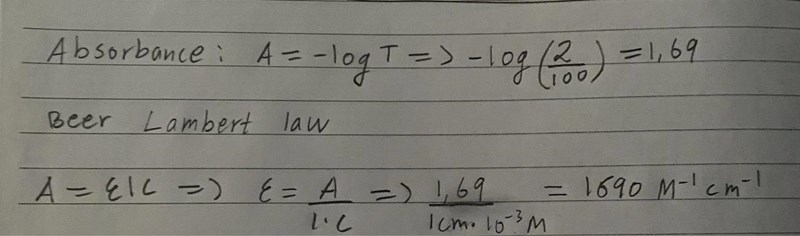 Absorbance: A = -log T => -log(2/100) = 1,69
Beer Lambert law
A = εlC => ε = A/l·C => 1,69/1cm·10⁻³M = 1690 M⁻¹cm⁻¹